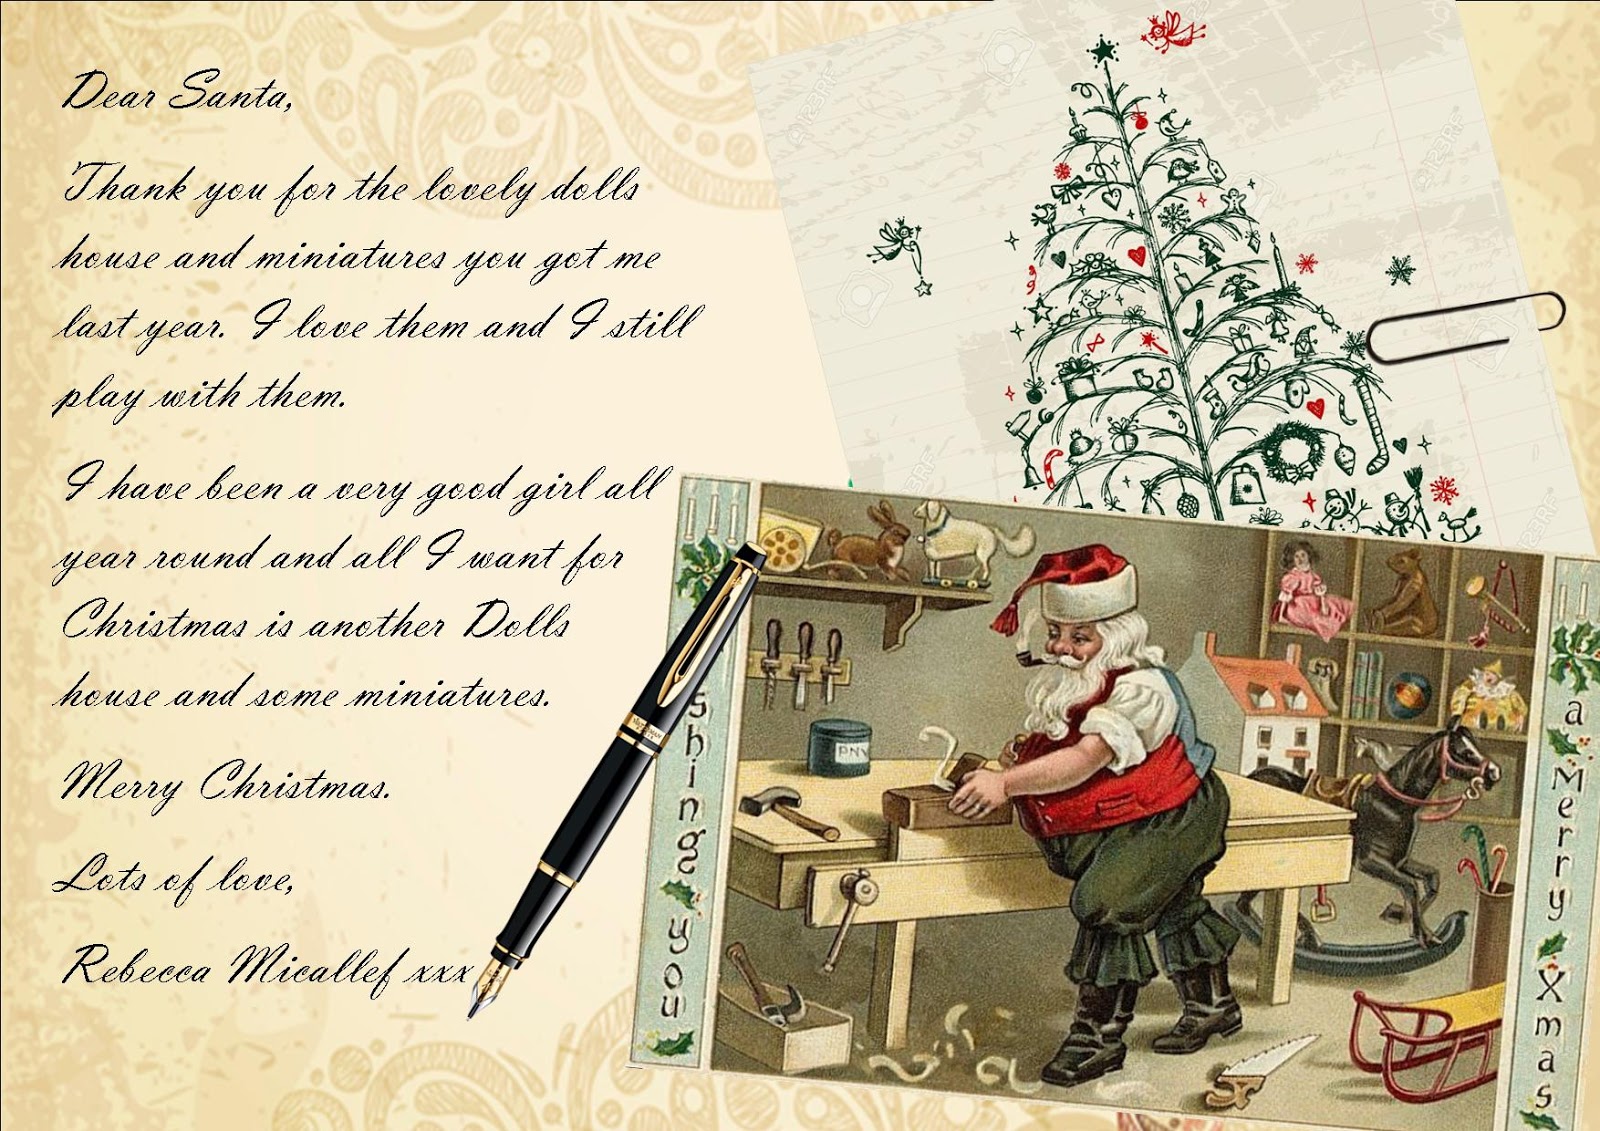 Dear Santa,
Thank you for the lovely dolls
house and miniatures you got me
last year. I love them and I still
play with them.
I have been a very good girl all
year round and all I want for
Christmas is another Dolls
house and some miniatures.
Merry Christmas.
Lots of love,
Rebecca Micallef xxx
shing you
a Merry Xmas
123RF
123RF
123RF
123RF